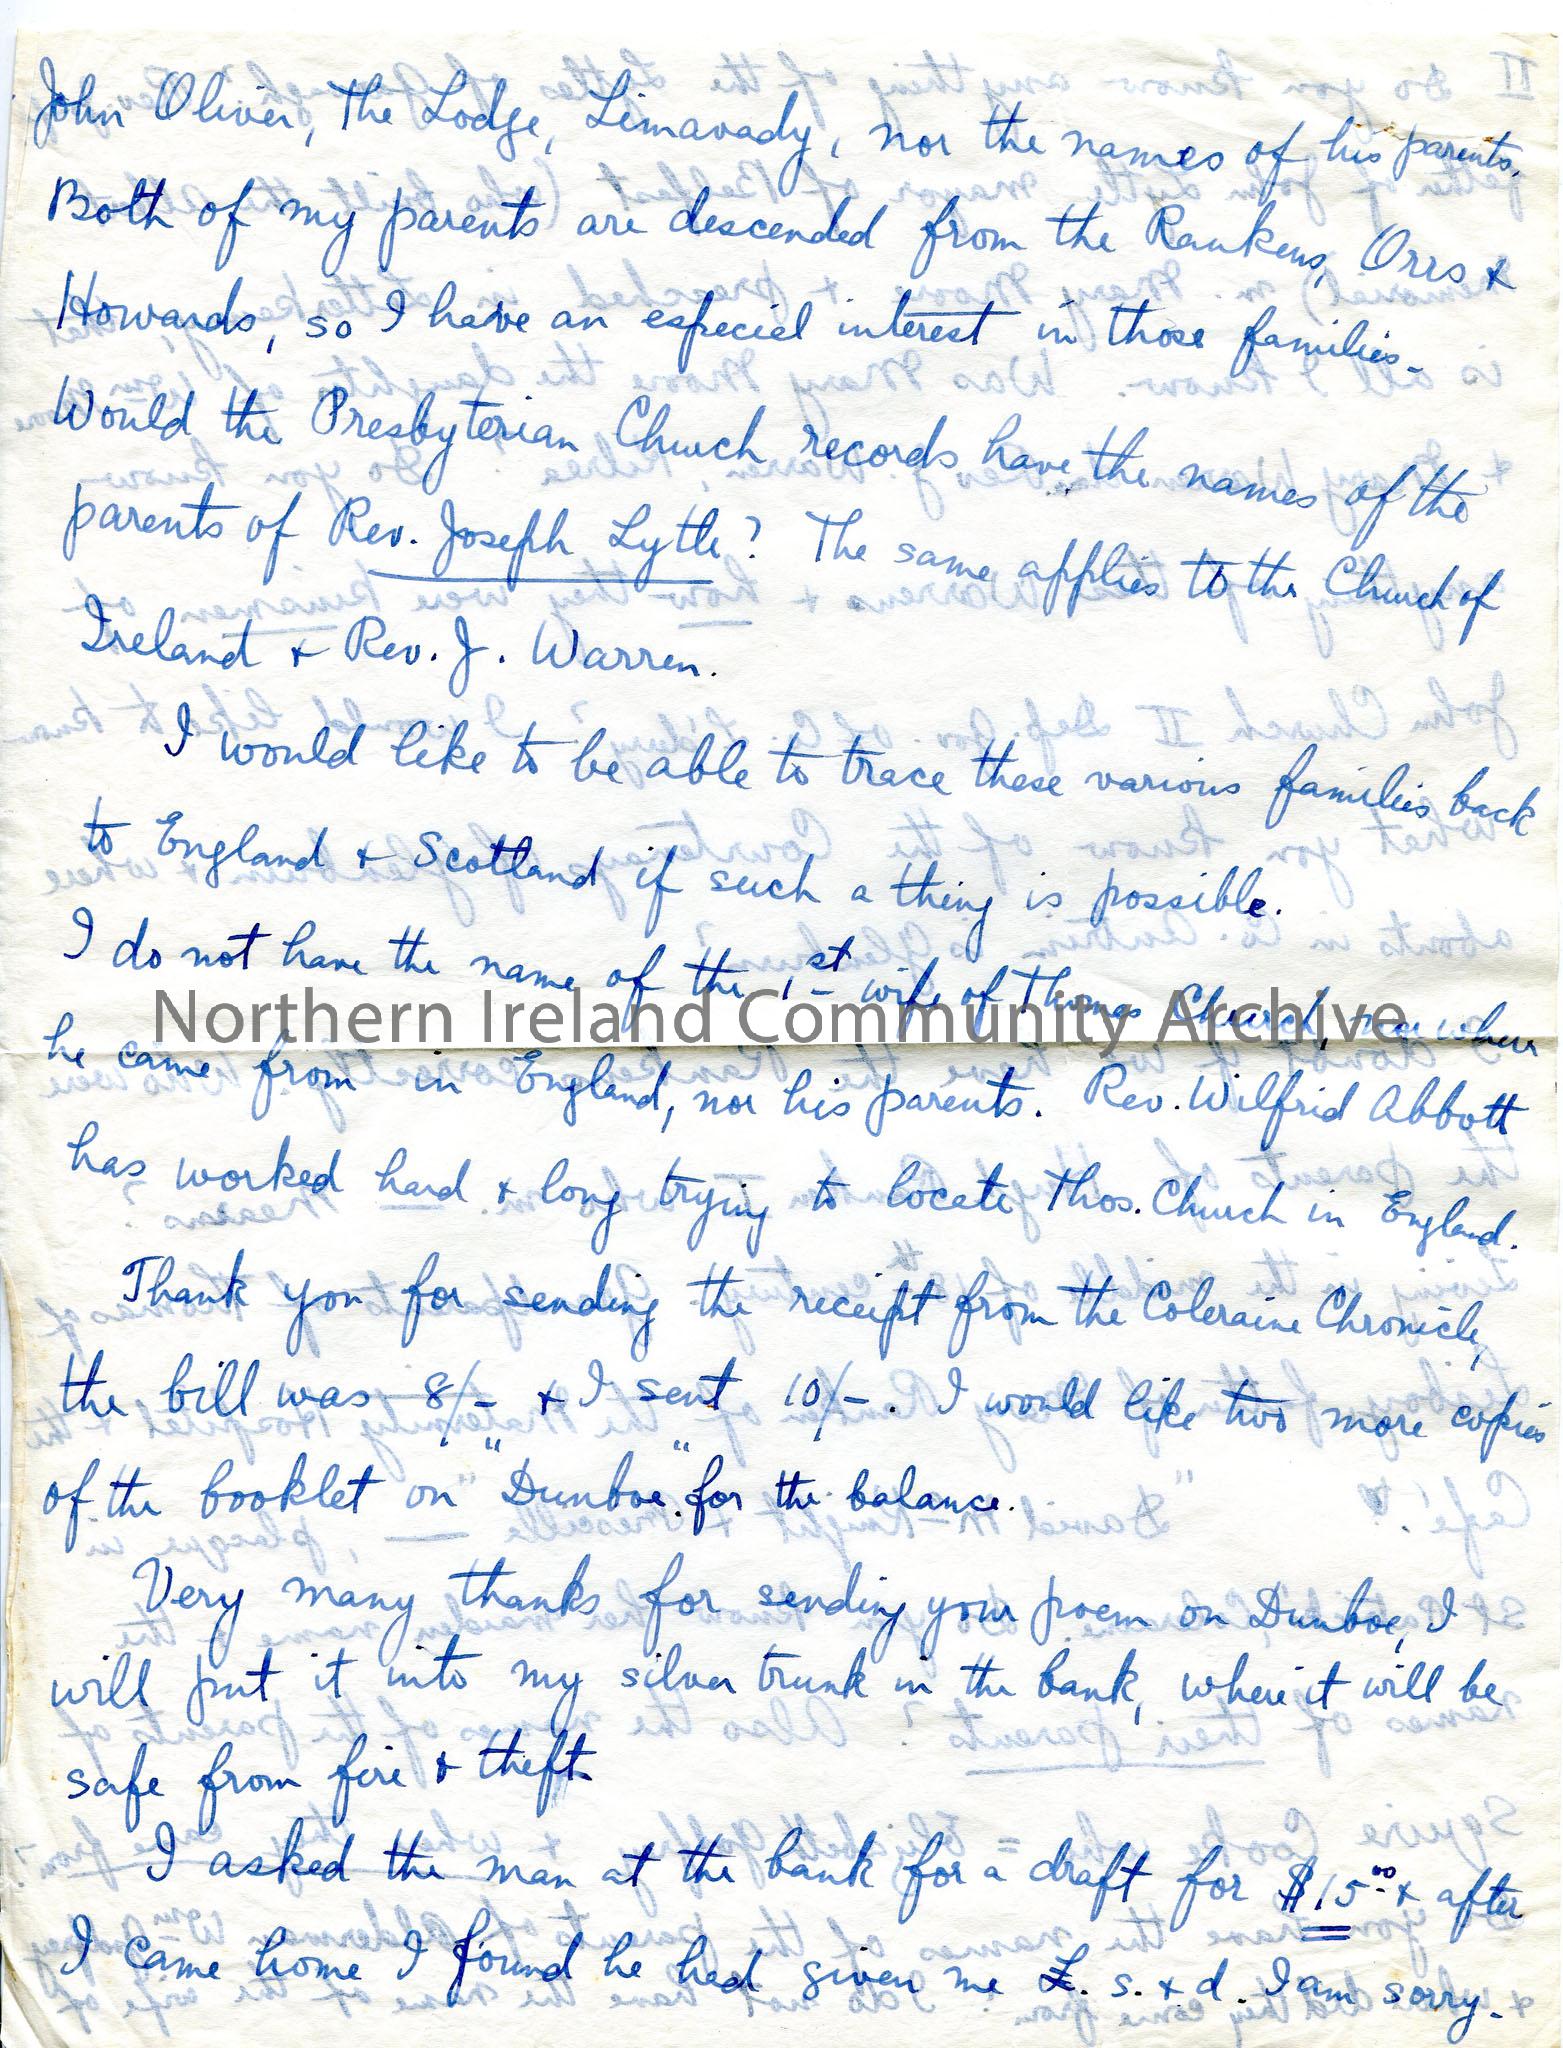 John Oliver, The Lodge, Limavady, nor the names of his parents.
Both of my parents are descended from the Rankens, Orrs &
Howards, so I have an especiel interest in those families.
Would the Presbyterian Church records have the names of the
parents of Rev. Joseph Lytle? The same applies to the Church of
Ireland & Rev. J. Warren.
I would like to be able to trace these various families back
to England & Scotland if such a thing is possible.
I do not have the name of the 1st wife of Thomas Church, nor where
Northern Ireland Community Archive
he came from in England, nor his parents. Rev. Wilfrid Abbott
has worked hard & long trying to locate Thos. Church in England.
Thank you for sending the receipt from the Coleraine Chronicle,
the bill was 8/- & I sent 10/-. I would like two more copies
of the booklet on "Dunboe" for the balance.
Very many thanks for sending your poem on Dunboe, I
will put it into my silver trunk in the bank, where it will be
safe from fire & theft.
I asked the man at the bank for a draft for $15.00 & after
I came home I found he had given me £. s. & d. I am sorry.